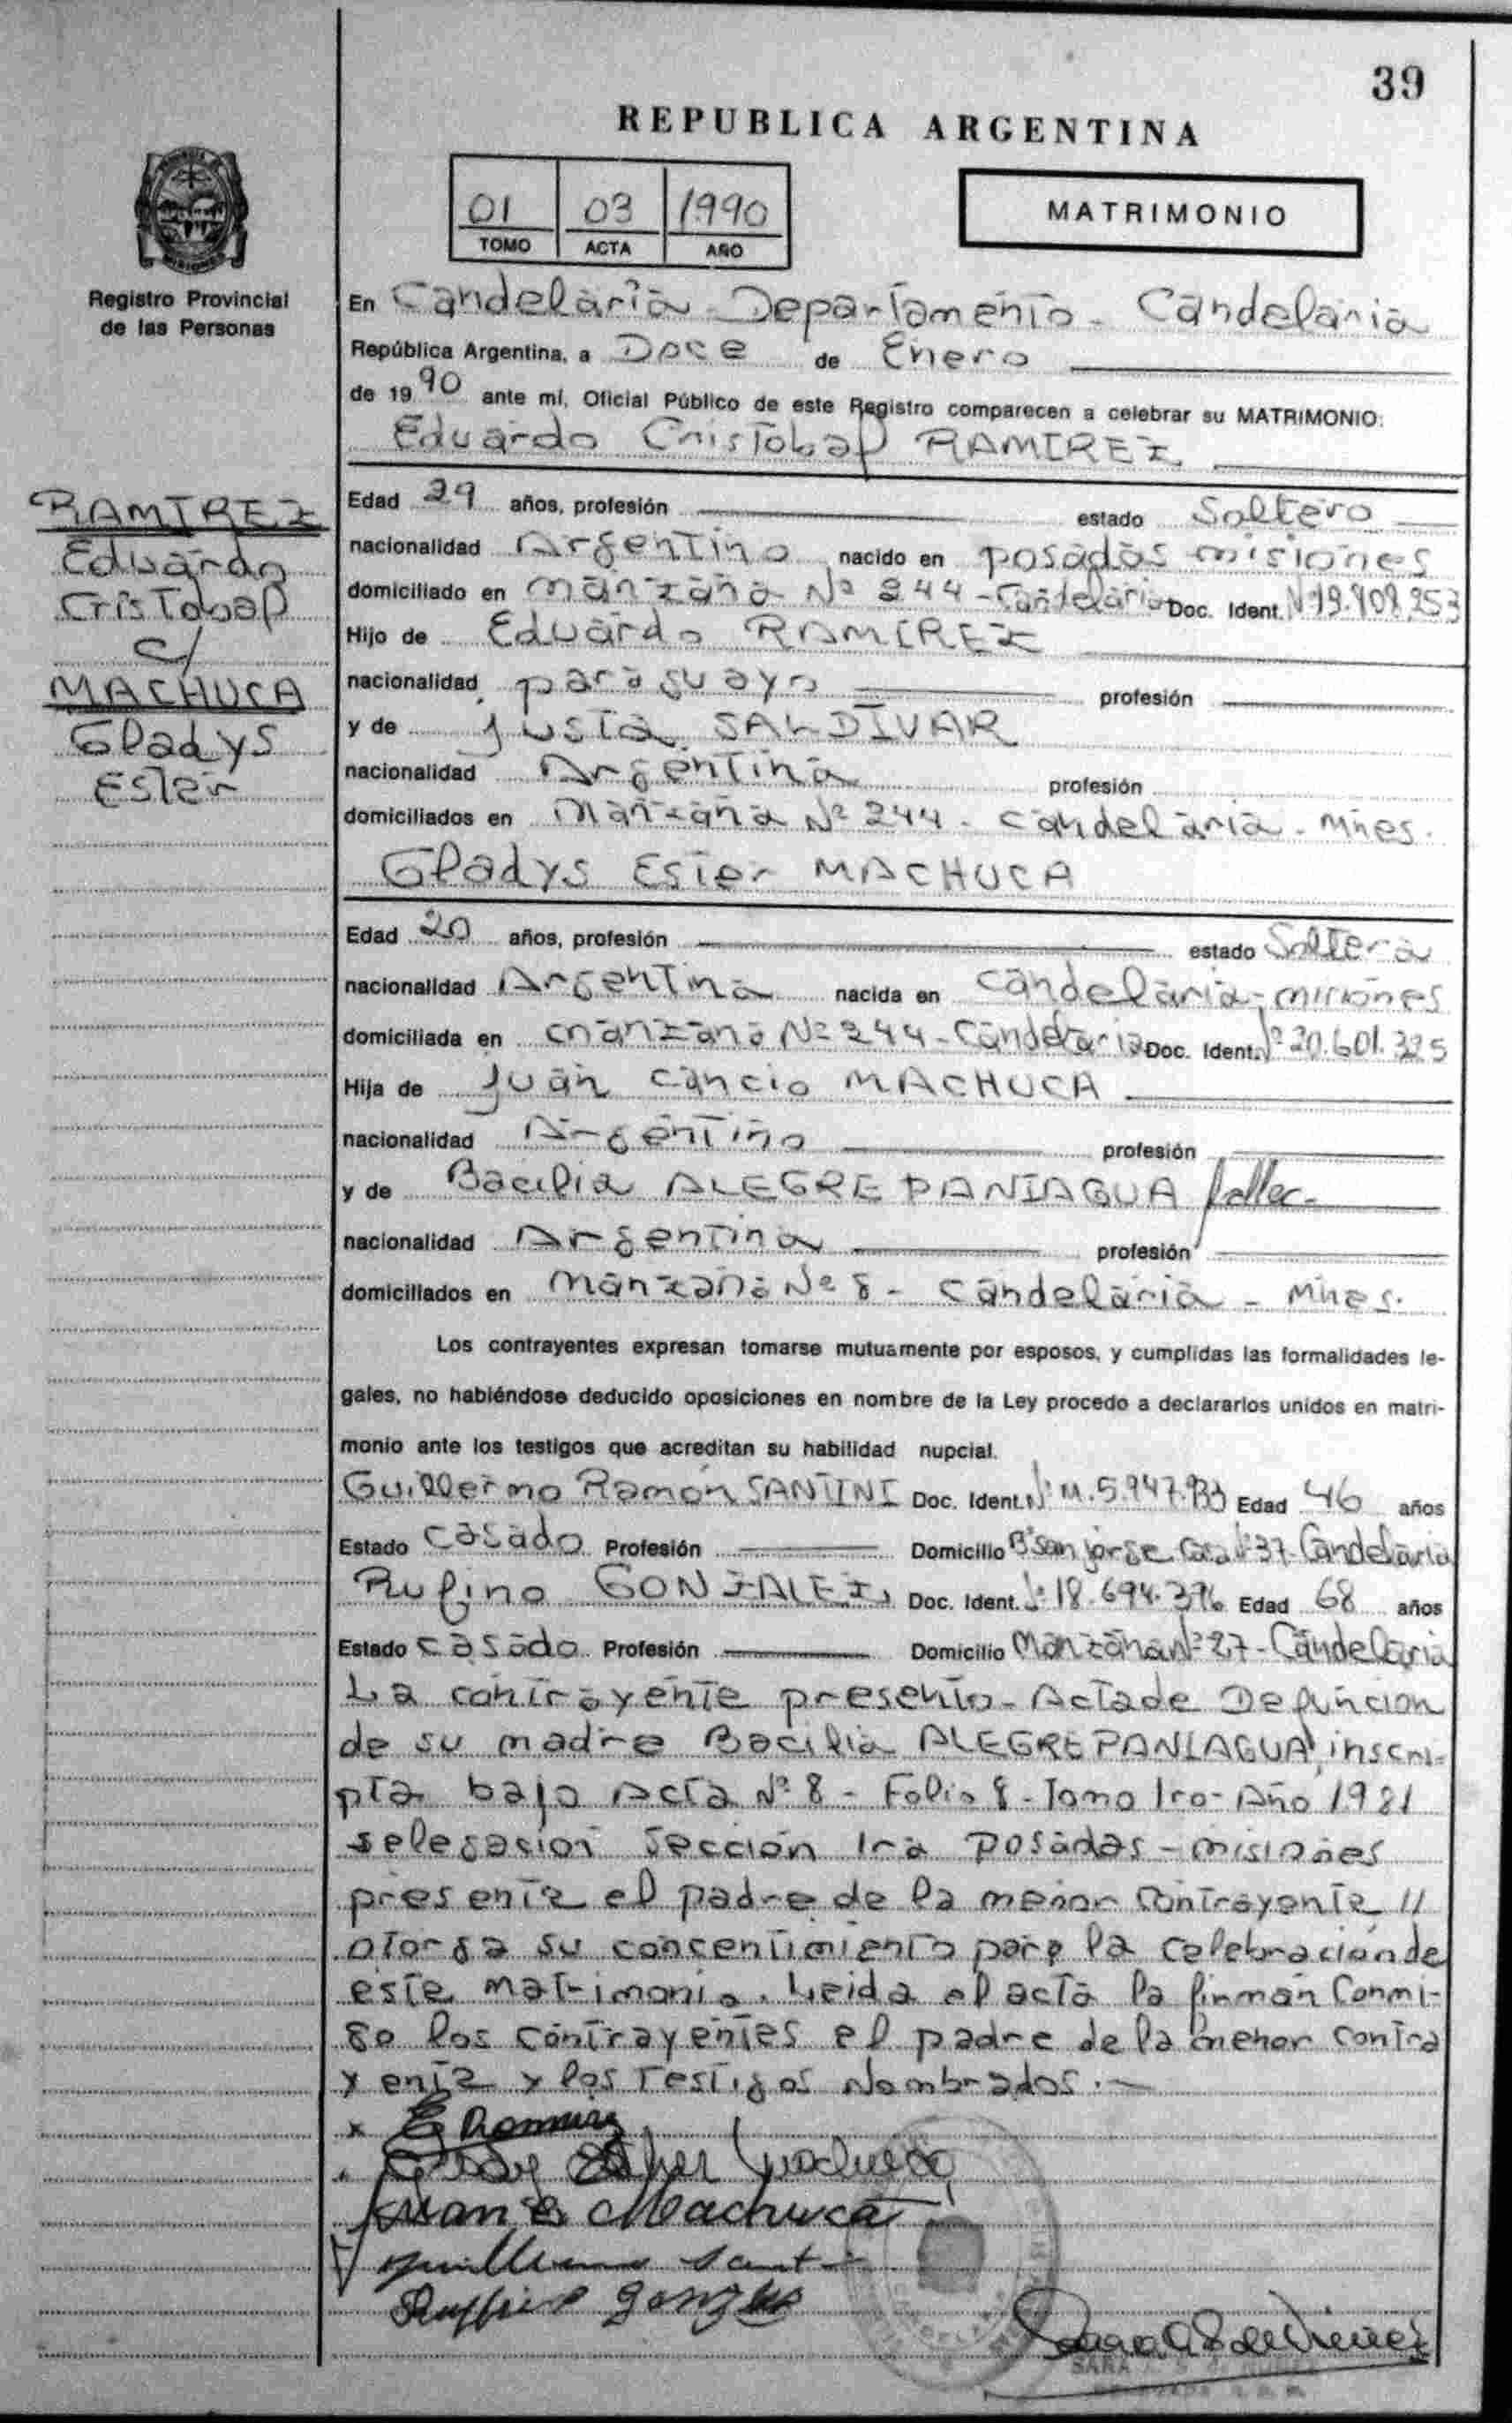 39
REPUBLICA ARGENTINA
01 03 1990
TOMO ACTA AÑO
MATRIMONIO
Registro Provincial
de las Personas
En Candelaria - Departamento - Candelaria
República Argentina, a Doce de Enero
de 1990 ante mí, Oficial Público de este Registro comparecen a celebrar su MATRIMONIO:
Eduardo Cristobal RAMIREZ
RAMIREZ
Eduardo
Cristobal
c/
MACHUCA
Gladys
Ester
Edad 29 años, profesión estado Soltero
nacionalidad Argentino nacido en posadas misiones
domiciliado en manzana Nº 244 - Candelaria Doc. Ident. Nº 19.408.253
Hijo de Eduardo RAMIREZ
nacionalidad paraguayo profesión
y de justa SALDIVAR
nacionalidad Argentina profesión
domiciliados en Manzana Nº 244 - Candelaria - Mnes.
Gladys Ester MACHUCA
Edad 20 años, profesión estado Soltera
nacionalidad Argentina nacida en Candelaria - misiones
domiciliada en manzana Nº 244 - Candelaria Doc. Ident. Nº 20.601.325
Hija de juan Cancio MACHUCA
nacionalidad Argentino profesión
y de Bacilia ALEGRE PANIAGUA fallec.
nacionalidad Argentina profesión
domiciliados en Manzana Nº 8 - Candelaria - Mnes.
Los contrayentes expresan tomarse mutuamente por esposos, y cumplidas las formalidades le-
gales, no habiéndose deducido oposiciones en nombre de la Ley procedo a declararlos unidos en matri-
monio ante los testigos que acreditan su habilidad nupcial.
Guillermo Ramón SANTINI Doc. Ident. Nº M. 5.947.933 Edad 46 años
Estado Casado Profesión Domicilio Bº San jorge Casa Nº 37 - Candelaria
Rufino GONZALEZ, Doc. Ident. Nº 18.694.376 Edad 68 años
Estado casado Profesión Domicilio Manzana Nº 27 - Candelaria
La contrayente presento - Acta de Defuncion
de su madre Bacilia ALEGRE PANIAGUA, inscri-
pta bajo Acta Nº 8 - Folio 8 - Tomo 1ro - Año 1981
selegacion Sección 1ra Posadas - misiones
presente el padre de la menor Contrayente //
otorga su concentimiento para la celebracion de
este matrimonio. Leida el acta la firman Conmi-
go los contrayentes el padre de la menor contra
yente y los Testigos Nombrados. -
x E Ramirez
Machuca
Juan C Machuca
Guillermo Sant
Ruffino Gonzalez
SARA